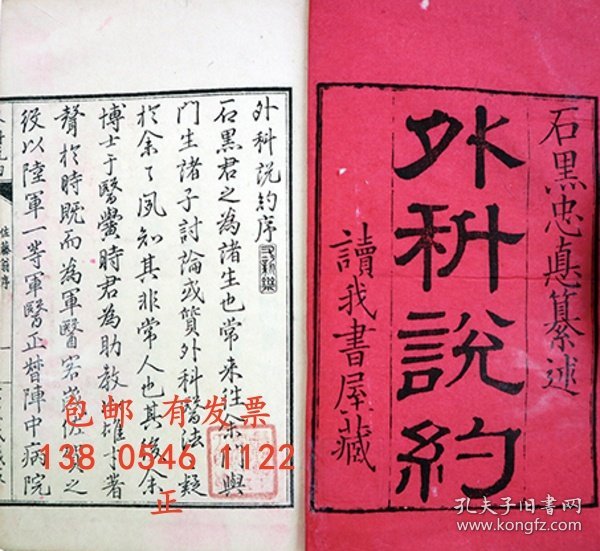 石黑忠悳纂述
外科說約
讀我書屋藏
外科說約序
石黑君之為諸生也常来往余
門生諸子討論或質外科醫法疑
於余々夙知其非常人也其後余
博士于醫黌時君為助教雄才著
聲於時既而為軍醫寮
役以陸軍一等軍醫正督陣中病院
佐藤翁序
包邮 有发票
138 0546 1122
正
孔夫子旧书网
www.kongfz.com